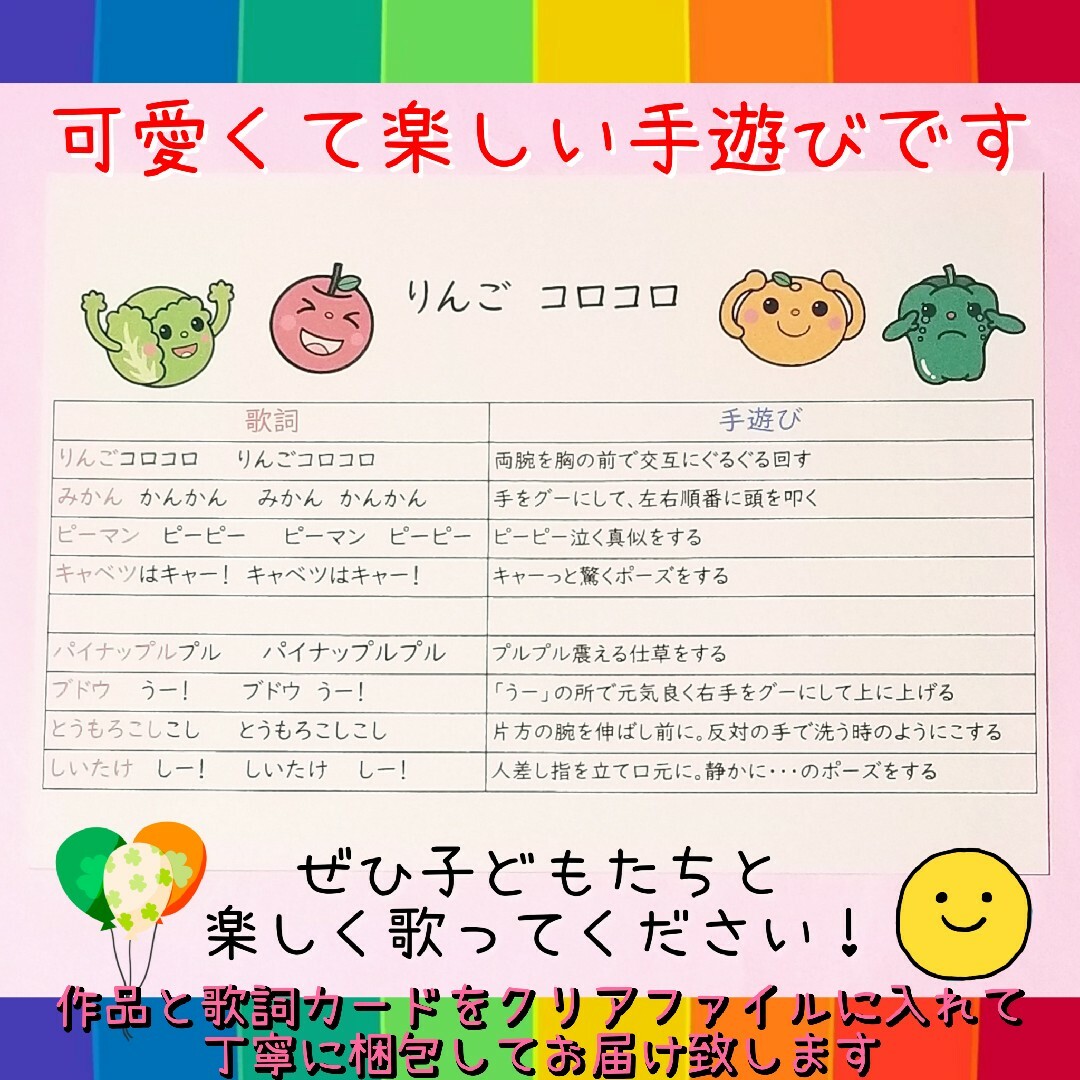 可愛くて楽しい手遊びです
りんご コロコロ
歌詞 手遊び
りんごコロコロ りんごコロコロ 両腕を胸の前で交互にぐるぐる回す
みかん かんかん みかん かんかん 手をグーにして、左右順番に頭を叩く
ピーマン ピーピー ピーマン ピーピー ピーピー泣く真似をする
キャベツはキャー! キャベツはキャー! キャーっと驚くポーズをする
パイナップルプル パイナップルプル プルプル震える仕草をする
ブドウ うー! ブドウ うー! 「うー」の所で元気良く右手をグーにして上に上げる
とうもろこしこし とうもろこしこし 片方の腕を伸ばし前に。反対の手で洗う時のようにこする
しいたけ しー! しいたけ しー! 人差し指を立て口元に。静かに・・・のポーズをする
ぜひ子どもたちと
楽しく歌ってください!
作品と歌詞カードをクリアファイルに入れて
丁寧に梱包してお届け致します